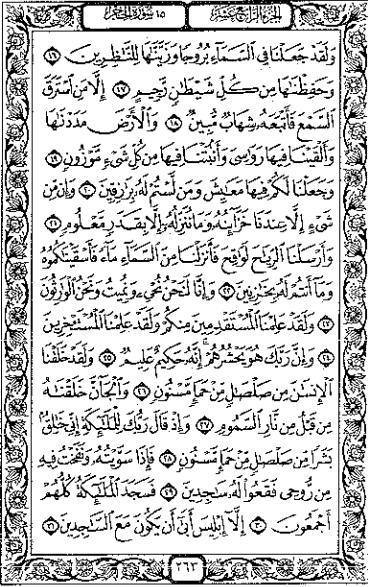 الجزء الرابع عشر ١٥ سورة الحجر
وَلَقَدْ جَعَلْنَا فِي السَّمَآءِ بُرُوجًا وَزَيَّنَّٰهَا لِلنَّٰظِرِينَ ١٦
وَحَفِظْنَٰهَا مِن كُلِّ شَيْطَٰنٍ رَّجِيمٍ ١٧ إِلَّا مَنِ ٱسْتَرَقَ
ٱلسَّمْعَ فَأَتْبَعَهُۥ شِهَابٌ مُّبِينٌ ١٨ وَٱلْأَرْضَ مَدَدْنَٰهَا
وَأَلْقَيْنَا فِيهَا رَوَٰسِىَ وَأَنۢبَتْنَا فِيهَا مِن كُلِّ شَىْءٍ مَّوْزُونٍ ١٩
وَجَعَلْنَا لَكُمْ فِيهَا مَعَٰيِشَ وَمَن لَّسْتُمْ لَهُۥ بِرَٰزِقِينَ ٢٠ وَإِن مِّن
شَىْءٍ إِلَّا عِندَنَا خَزَآئِنُهُۥ وَمَا نُنَزِّلُهُۥٓ إِلَّا بِقَدَرٍ مَّعْلُومٍ ٢١
وَأَرْسَلْنَا ٱلرِّيَٰحَ لَوَٰقِحَ فَأَنزَلْنَا مِنَ ٱلسَّمَآءِ مَآءً فَأَسْقَيْنَٰكُمُوهُ
وَمَآ أَنتُمْ لَهُۥ بِخَٰزِنِينَ ٢٢ وَإِنَّا لَنَحْنُ نُحْىِۦ وَنُمِيتُ وَنَحْنُ ٱلْوَٰرِثُونَ
٢٣ وَلَقَدْ عَلِمْنَا ٱلْمُسْتَقْدِمِينَ مِنكُمْ وَلَقَدْ عَلِمْنَا ٱلْمُسْتَـْٔخِرِينَ
٢٤ وَإِنَّ رَبَّكَ هُوَ يَحْشُرُهُمْ ۚ إِنَّهُۥ حَكِيمٌ عَلِيمٌ ٢٥ وَلَقَدْ خَلَقْنَا
ٱلْإِنسَٰنَ مِن صَلْصَٰلٍ مِّنْ حَمَإٍ مَّسْنُونٍ ٢٦ وَٱلْجَآنَّ خَلَقْنَٰهُ
مِن قَبْلُ مِن نَّارِ ٱلسَّمُومِ ٢٧ وَإِذْ قَالَ رَبُّكَ لِلْمَلَٰٓئِكَةِ إِنِّى خَٰلِقٌۢ
بَشَرًا مِّن صَلْصَٰلٍ مِّنْ حَمَإٍ مَّسْنُونٍ ٢٨ فَإِذَا سَوَّيْتُهُۥ وَنَفَخْتُ فِيهِ
مِن رُّوحِى فَقَعُوا۟ لَهُۥ سَٰجِدِينَ ٢٩ فَسَجَدَ ٱلْمَلَٰٓئِكَةُ كُلُّهُمْ
أَجْمَعُونَ ٣٠ إِلَّآ إِبْلِيسَ أَبَىٰٓ أَن يَكُونَ مَعَ ٱلسَّٰجِدِينَ ٣١
٢٦٣